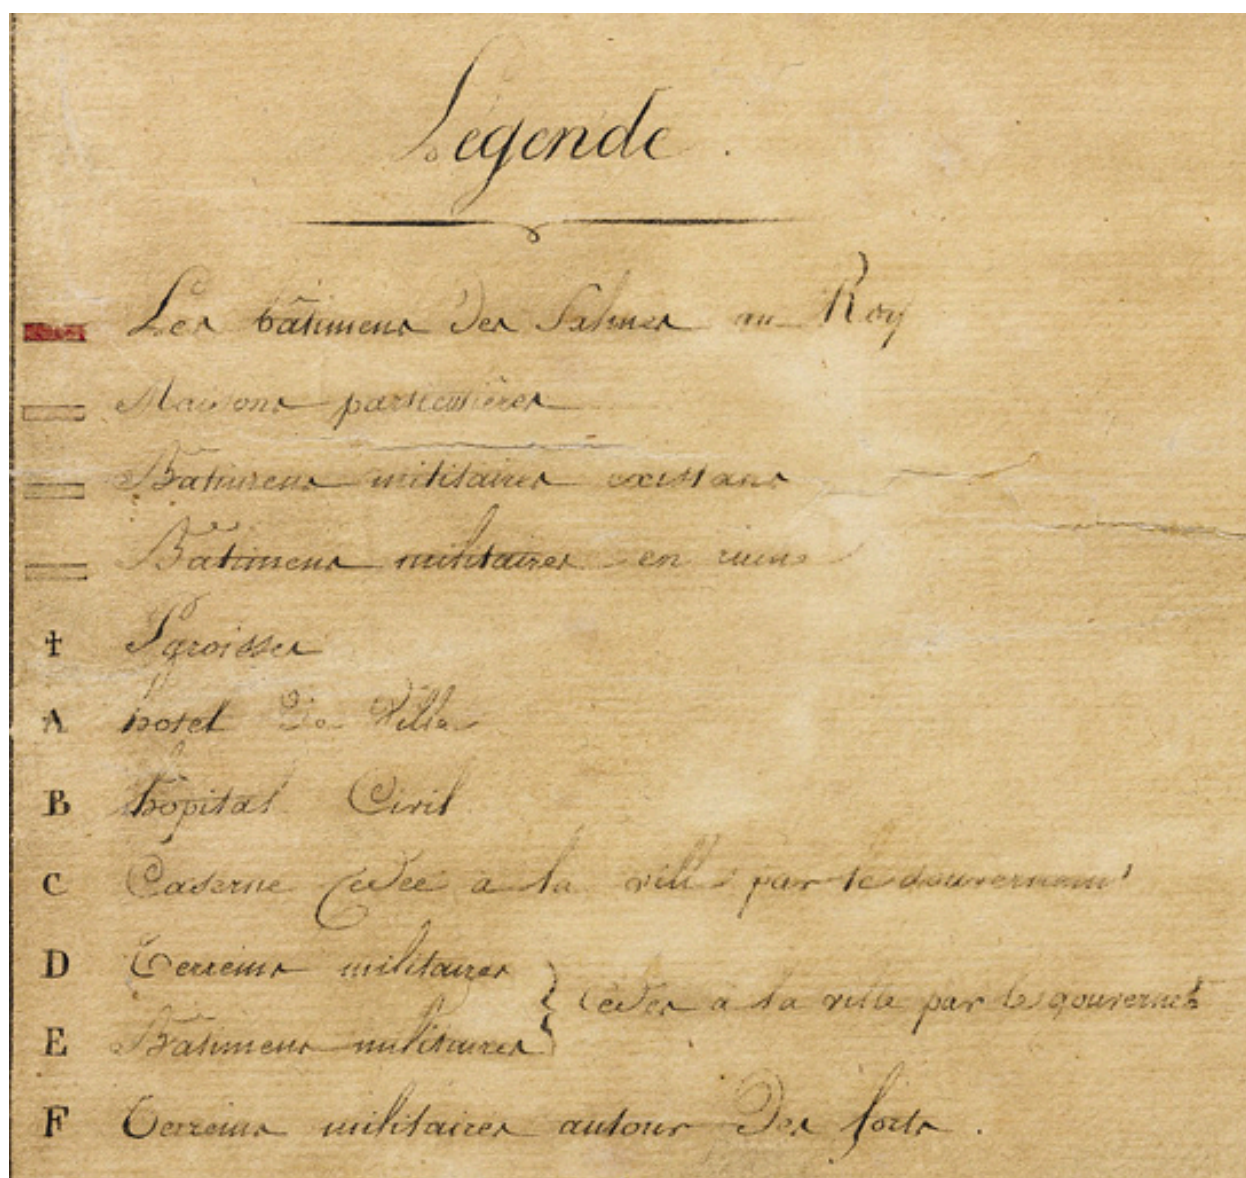 Légende .
Les bâtimens Des Salines au Roy
Maisons particulières
Bâtimens militaires existans
Bâtimens militaires en ruine
† Paroisses
A hotel De Ville
B hôpital Civil
C Caserne Cedée a la ville par le Gouvernemt
D Terreins militaires
} Cedés a la ville par le gouvernet
E Bâtimens militaires
F Terreins militaires autour Des forts .